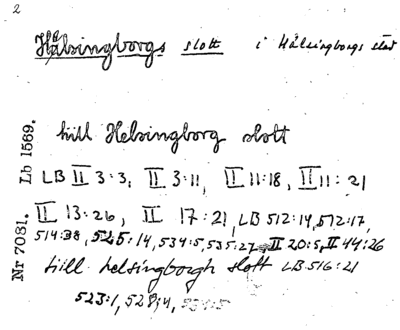 2
Hälsingborgs slott i Hälsingborgs stad
till Helsingborg slott
LB II 3:3, II 3:11, II 11:18, II 11:21
II 13:26, II 17:21, LB 512:14, 512:17,
514:38, 525:14, 534:5, 535:27, II 20:5, II 44:26
till helsingborgh slott LB 516:21
523:1, 528:4,
Nr 7081. Lb 1569.